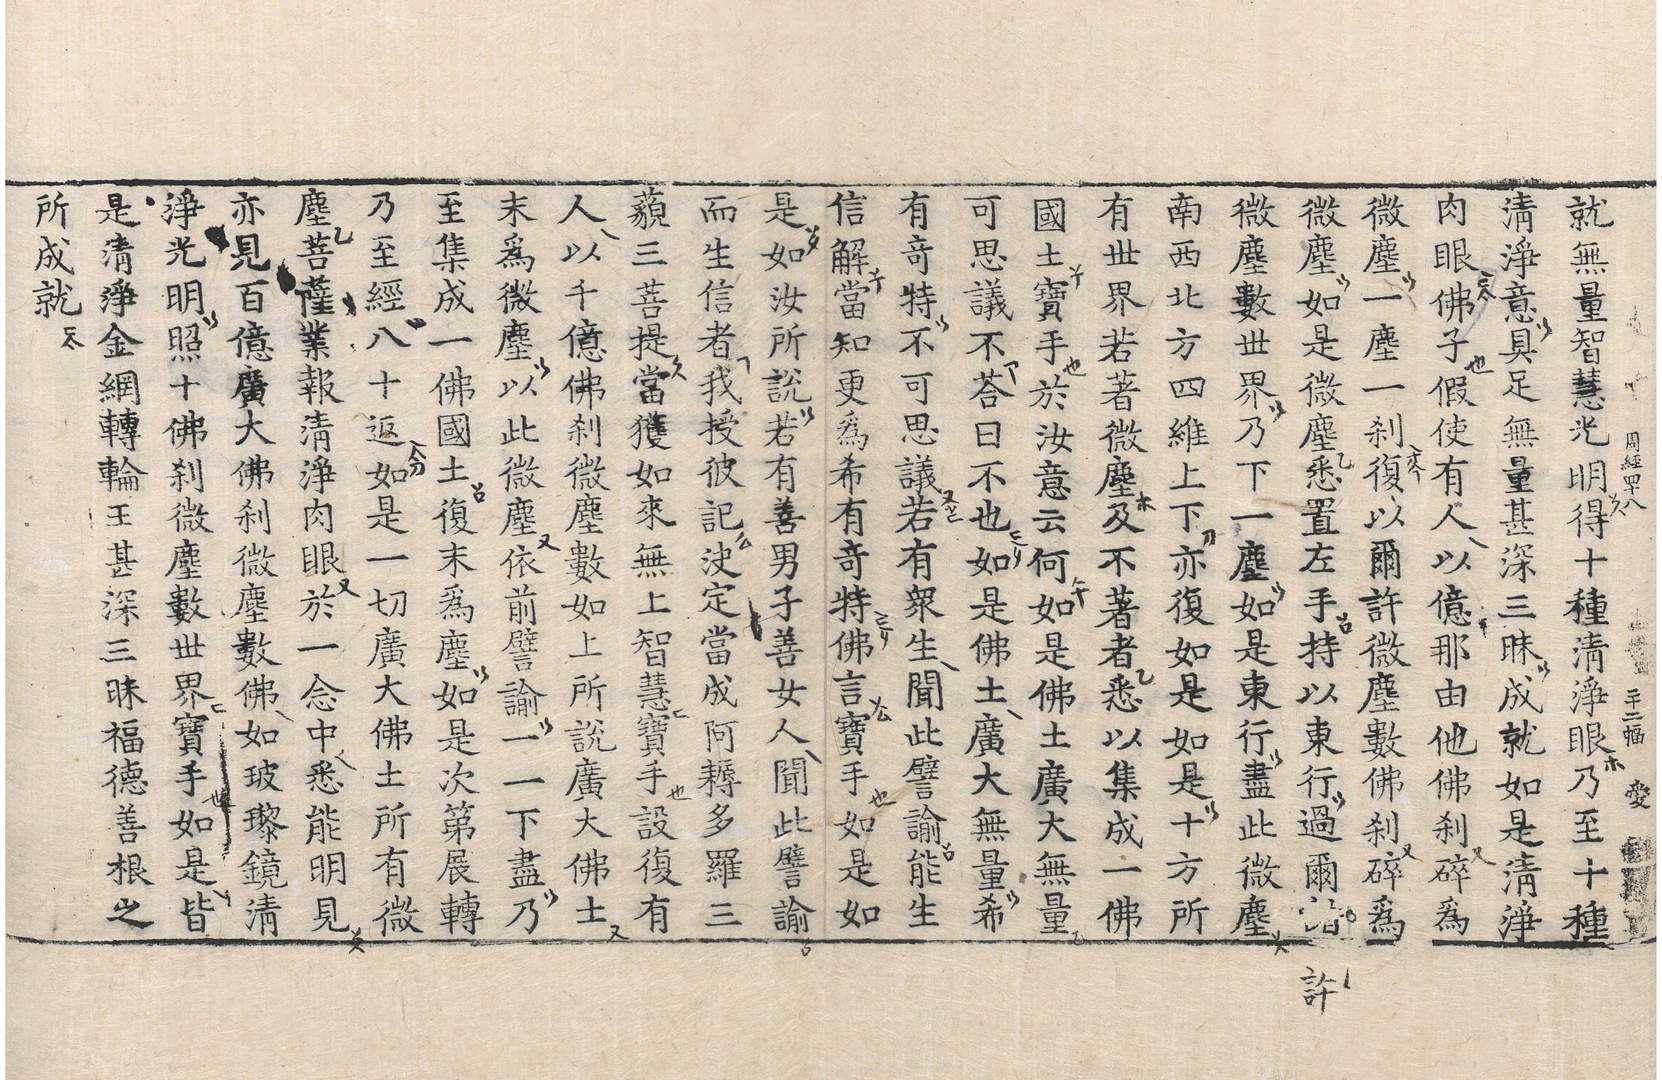 周經四十八 二十二幅 愛
就無量智慧光明得十種清淨眼乃至十種
清淨意具足無量甚深三昧成就如是清淨
肉眼佛子假使有人以億那由他佛刹碎爲
微塵一塵一刹復以爾許微塵數佛刹碎爲
微塵如是微塵悉置左手持以東行過爾許
微塵數世界乃下一塵如是東行盡此微塵
南西北方四維上下亦復如是如是十方所
有世界若著微塵及不著者悉以集成一佛
國土寶手於汝意云何如是佛土廣大無量
可思議不荅曰不也如是佛土廣大無量希
有奇特不可思議若有衆生聞此譬諭能生
信解當知更爲希有奇特佛言寶手如是如
是如汝所說若有善男子善女人聞此譬諭
而生信者我授彼記決定當成阿耨多羅三
藐三菩提當獲如來無上智慧寶手設復有
人以千億佛刹微塵數如上所說廣大佛土
末爲微塵以此微塵依前譬諭一一下盡乃
至集成一佛國土復末爲塵如是次第展轉
乃至經八十返如是一切廣大佛土所有微
塵菩薩業報清淨肉眼於一念中悉能明見
亦見百億廣大佛刹微塵數佛如玻瓈鏡清
淨光明照十佛刹微塵數世界寶手如是皆
是清淨金網轉輪王甚深三昧福德善根之
所成就